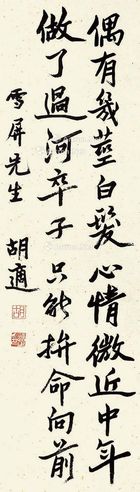 偶有幾莖白髮心情微近中年
做了過河卒子只能拚命向前
雪屏先生
胡適
胡